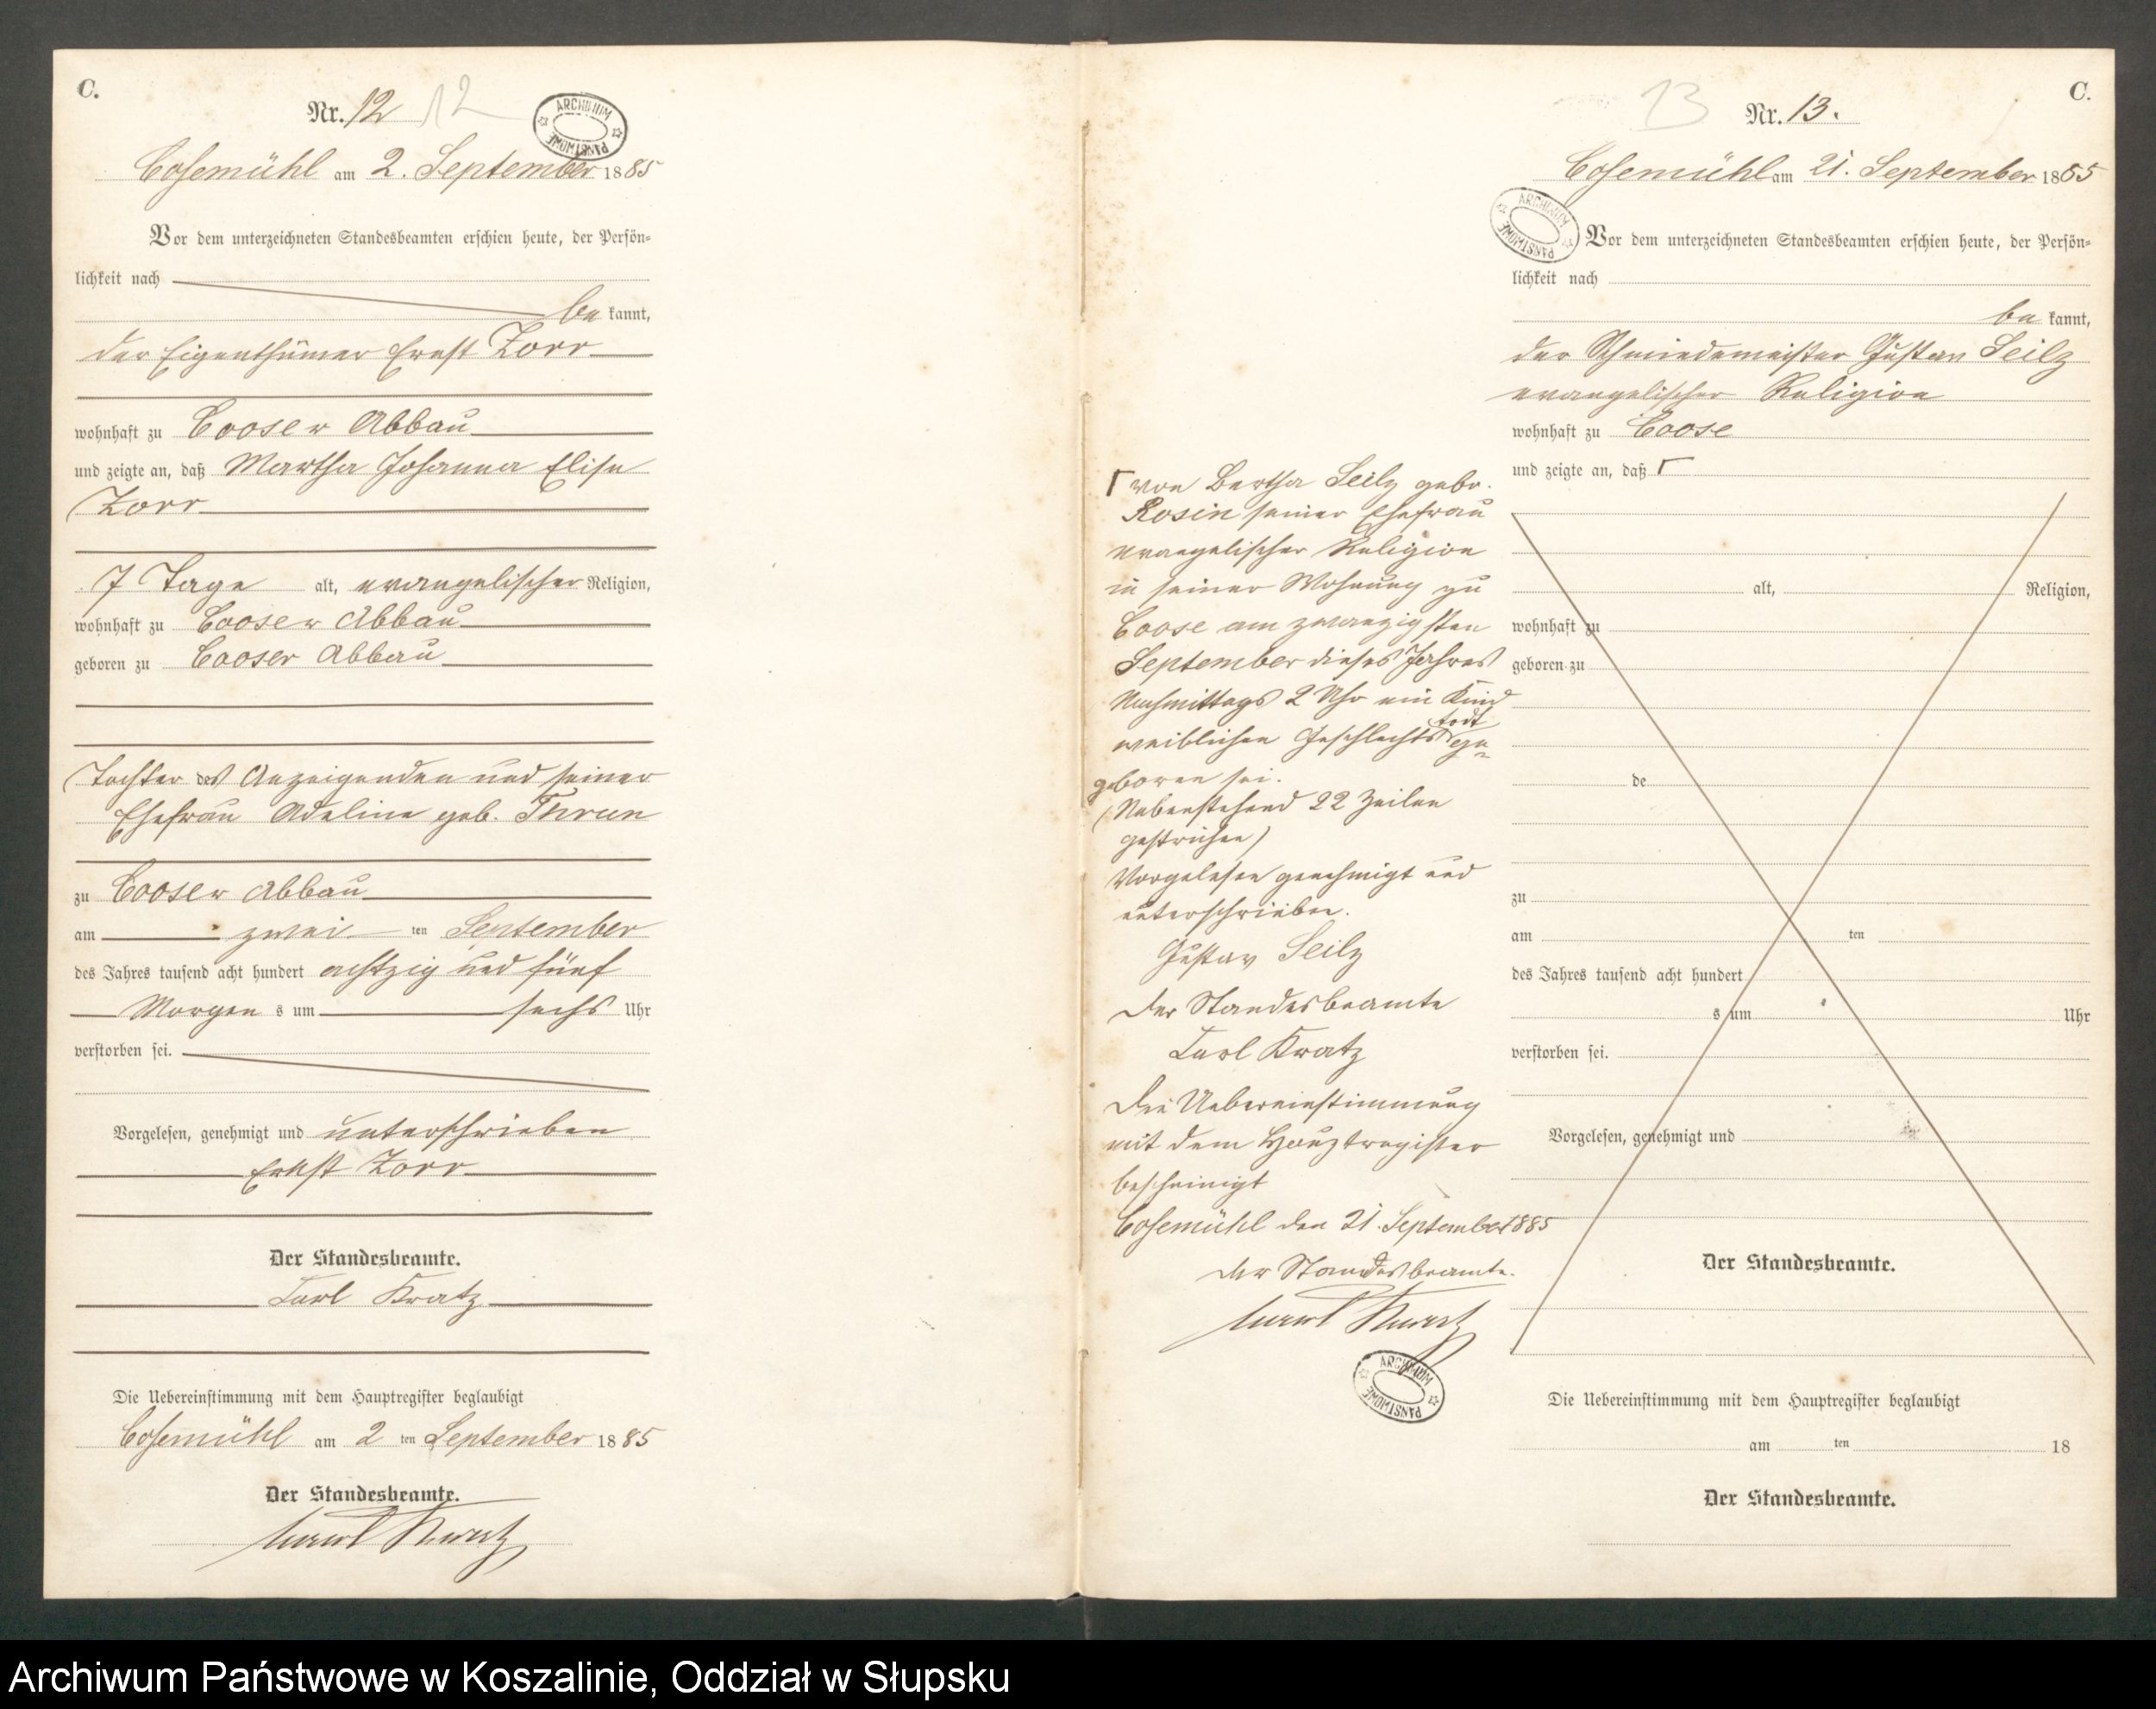 C.
Nr. 12 12
ARCHIWUM PAŃSTWOWE
Cosemühl am 2. September 1885
Vor dem unterzeichneten Standesbeamten erschien heute, der Persön-
lichkeit nach
be kannt,
der Eigenthümer Ernst Zorr
wohnhaft zu Cooser Abbau
und zeigte an, daß Martha Johanna Elise
Zorr
7 Tage alt, evangelischer Religion,
wohnhaft zu Cooser Abbau
geboren zu Cooser Abbau
Tochter des Anzeigenden und seiner
Ehefrau Adeline geb. Thrun
zu Cooser Abbau
am zwei ten September
des Jahres tausend acht hundert achtzig und fünf
Morgen s um sechs Uhr
verstorben sei.
Vorgelesen, genehmigt und unterschrieben
Ernst Zorr
Der Standesbeamte.
Carl Kratz
Die Uebereinstimmung mit dem Hauptregister beglaubigt
Cosemühl am 2 ten September 1885
Der Standesbeamte.
Carl Kratz
C.
13 Nr. 13.
Cosemühl am 21. September 1885
ARCHIWUM PAŃSTWOWE
Vor dem unterzeichneten Standesbeamten erschien heute, der Persön-
lichkeit nach
be kannt,
der Schmiedemeister Gustav Seilz
evangelischer Religion
wohnhaft zu Coose
und zeigte an, daß Γ
Γ von Bertha Seilz gebo.
Rosin seiner Ehefrau
evangelischer Religion
in seiner Wohnung zu
Coose am zwanzigsten
September dieses Jahres
Nachmittags 2 Uhr ein Kind
weiblichen Geschlechts todt ge-
geboren sei.
(Nebenstehend 22 Zeilen
gestrichen)
Vorgelesen genehmigt und
unterschrieben.
Gustav Seilz
Der Standesbeamte
Carl Kratz
Die Uebereinstimmung
mit dem Hauptregister
bescheinigt
Cosemühl den 21. September 1885
Der Standesbeamte.
Carl Kratz
ARCHIWUM PAŃSTWOWE
alt, Religion,
wohnhaft zu
geboren zu
de
zu
am ten
des Jahres tausend acht hundert
s um Uhr
verstorben sei.
Vorgelesen, genehmigt und
Der Standesbeamte.
Die Uebereinstimmung mit dem Hauptregister beglaubigt
am ten 18
Der Standesbeamte.
Archiwum Państwowe w Koszalinie, Oddział w Słupsku